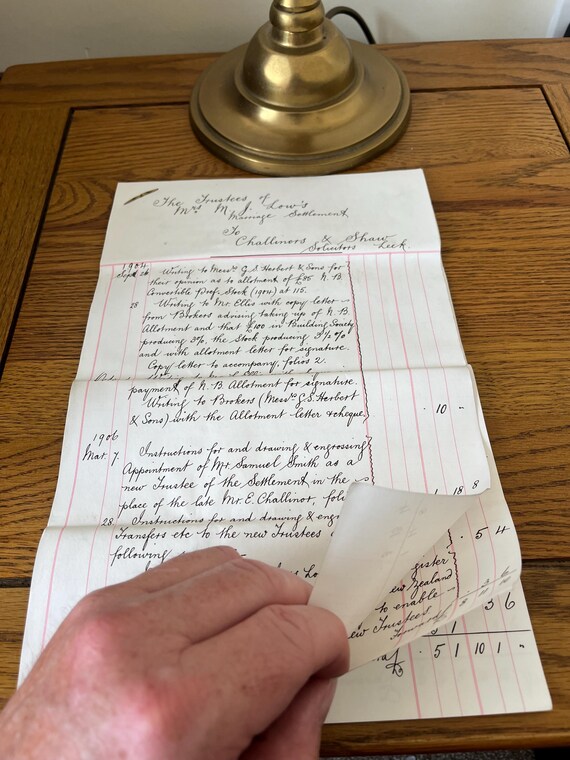 The Trustees of
Mrs M. J. Low's
Marriage Settlement
To
Challinors & Shaw
Solicitors Leek.
1904
Sept 26 Writing to Messrs G. S. Herbert & Sons for
their opinion as to allotment of £85 N. B.
Convertible Pref. Stock (1904) at 115.
28 Writing to Mr. Ellis with copy letter
from Brokers advising taking up of N. B.
Allotment and that £100 in Building Society
producing 3%, the Stock producing 3½%
and with allotment letter for signature.
Copy letter to accompany, folios 2.
payment of N. B Allotment for signature.
Writing to Brokers (Messrs G. S. Herbert
& Sons) with the Allotment letter & cheque. 10 "
1906
Mar. 7. Instructions for and drawing & engrossing
Appointment of Mr. Samuel Smith as a
new Trustee of the Settlement in the
place of the late Mr. E. Challinor,
18 8
28 Instructions for and drawing &
Transfers etc to the new Trustees
following
5 4
to enable
Trustees
3 6
1
5 1 10 1 "